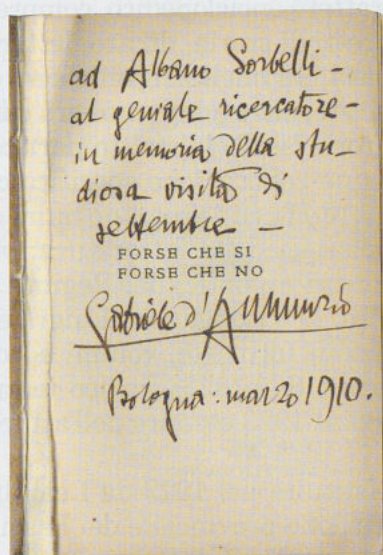 ad Albano Sorbelli –
al geniale ricercatore –
in memoria della stu–
diosa visita di
settembre –
FORSE CHE SI
FORSE CHE NO
Gabriele d'Annunzio
Bologna: marzo 1910.